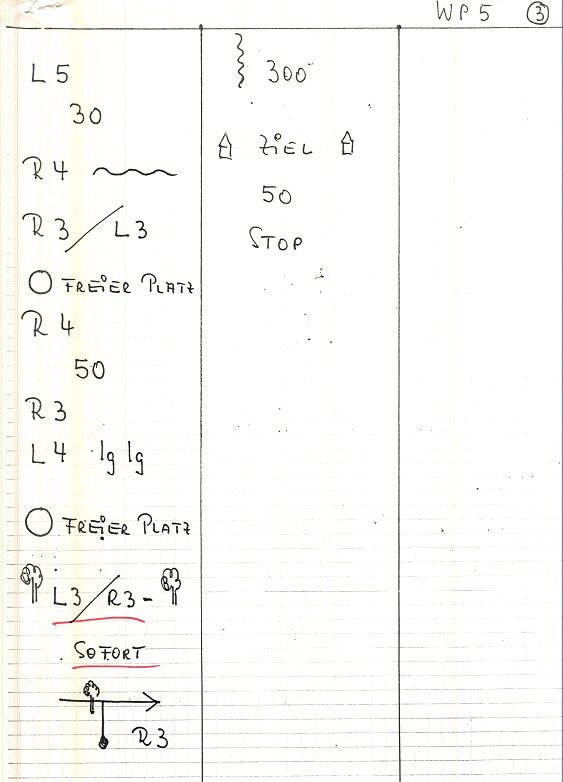 WP 5 3
L 5
30
R 4
R 3 / L 3
FREIER PLATZ
R 4
50
R 3
L 4 lg lg
FREIER PLATZ
L 3 / R 3 -
SOFORT
R 3
300
ZIEL
50
STOP